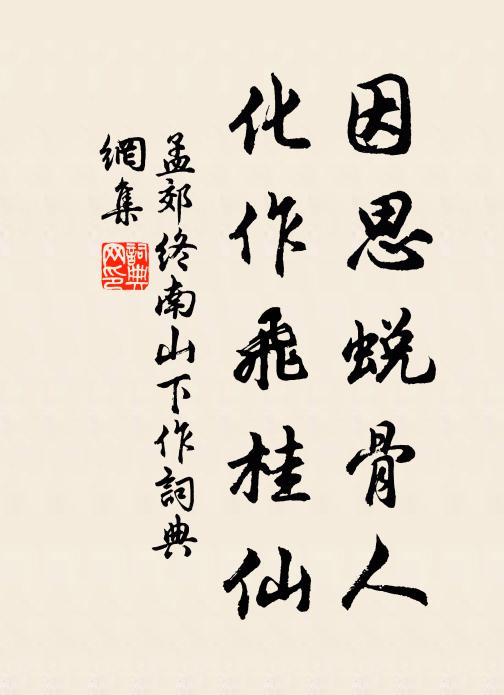 因思蜕骨人
化作飛桂仙
孟郊終南山下作詞典
網集
詞典網印